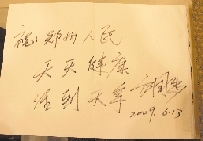 祝郑州人民
天天健康
活到天年
2009.6.13